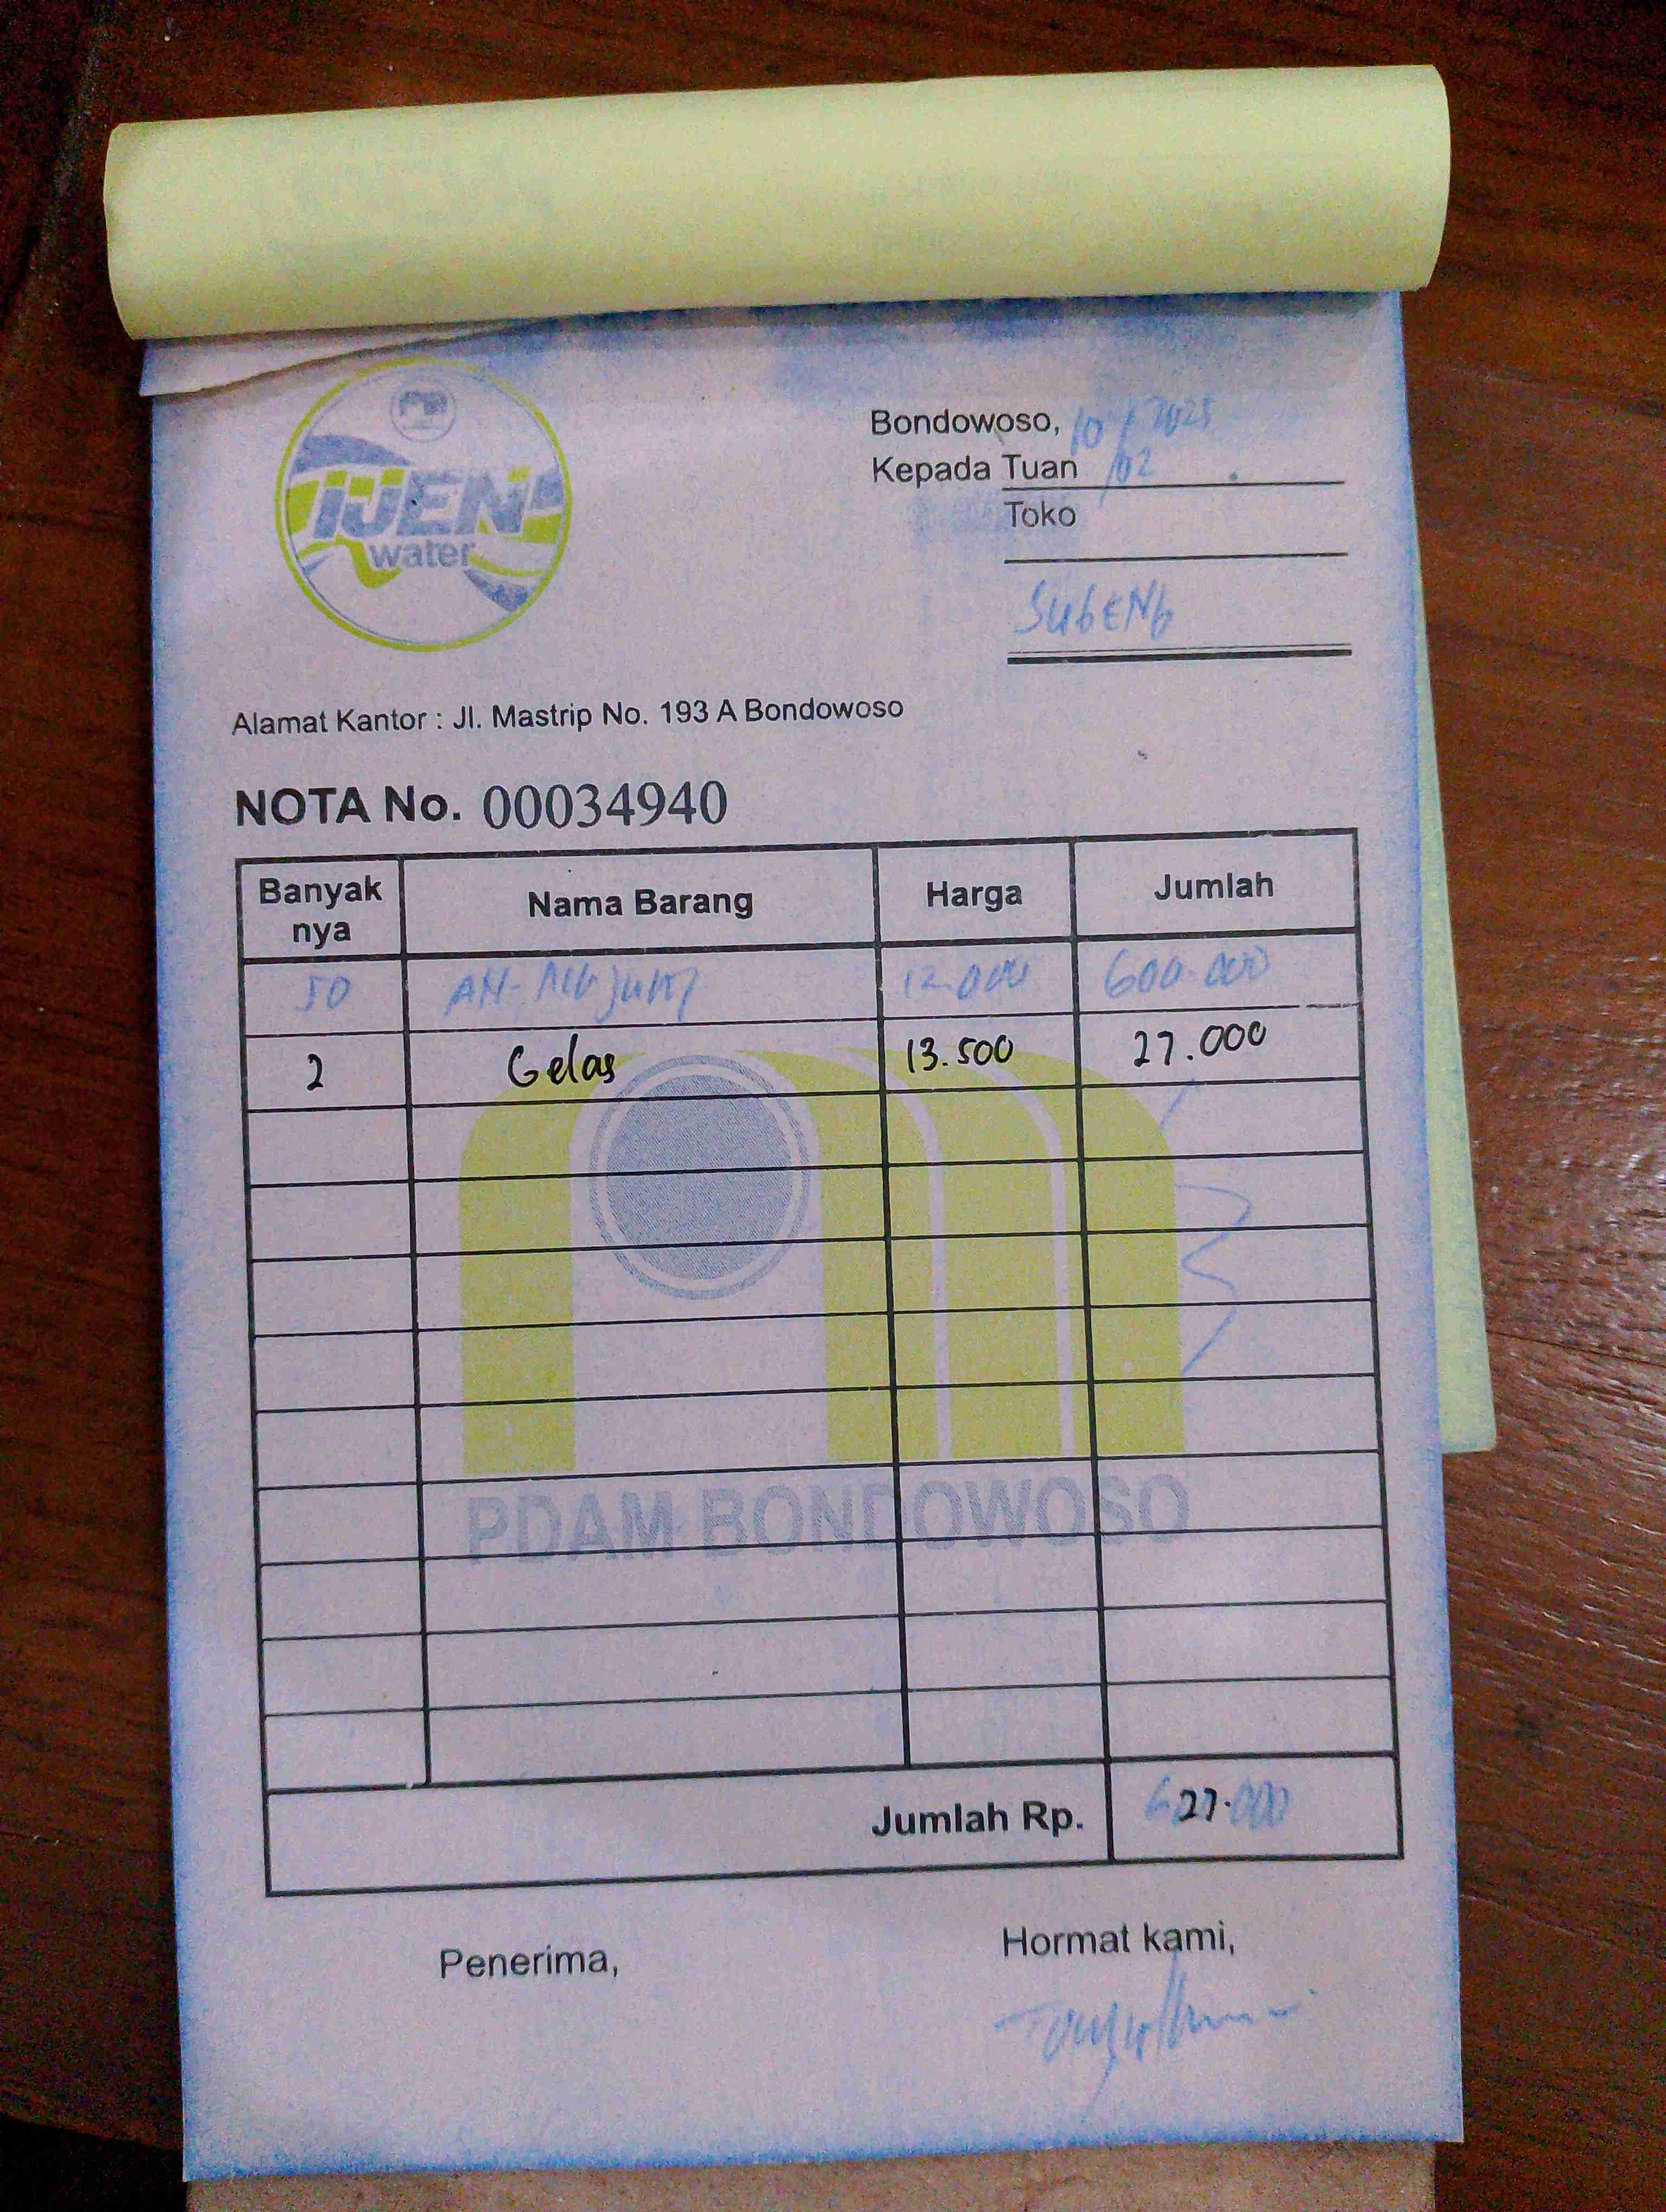 IJEN
water
Bondowoso, 10/02/2025
Kepada Tuan
Toko
SUGENG
Alamat Kantor : Jl. Mastrip No. 193 A Bondowoso
NOTA No. 00034940
Banyak nya Nama Barang Harga Jumlah
50 12.000 600.000
2 Gelas 13.500 27.000
PDAM BONDOWOSO
Jumlah Rp. 627.000
Penerima, Hormat kami,